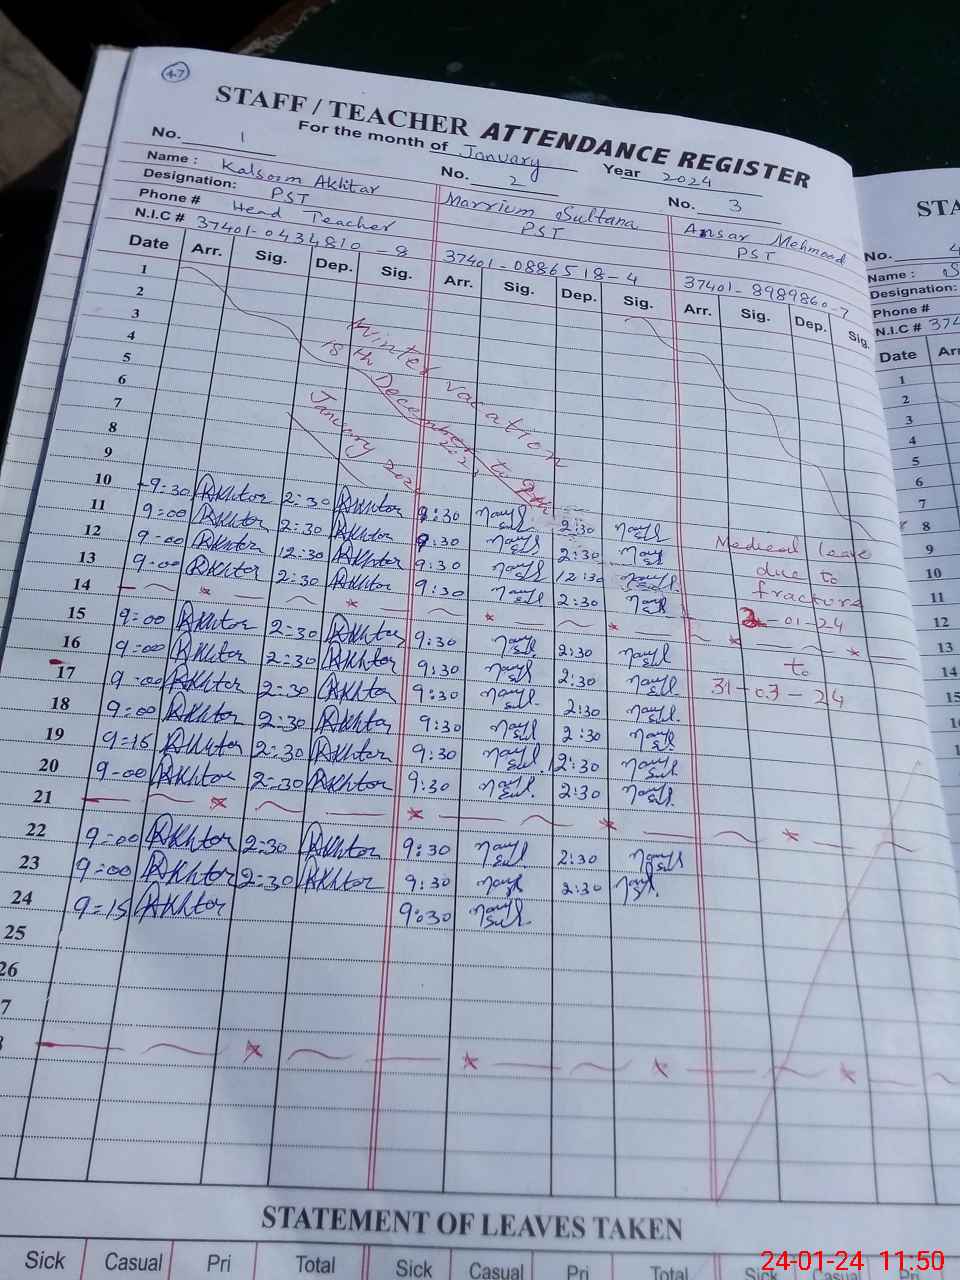 47
STAFF / TEACHER ATTENDANCE REGISTER
For the month of January Year 2024
No. 1 No. 2 No. 3
Name : Kalsoom Akhtar Marrium Sultana Ansar Mehmood
Designation: PST PST PST
Phone # Head Teacher
N.I.C # 37401-0434810-8 37401-0886518-4 37401-8989860-7
Date Arr. Sig. Dep. Sig. Arr. Sig. Dep. Sig. Arr. Sig. Dep. Sig.
1
2
3
4
5
6
7
8
9
Winter vacation
18th December to 9th
January
10 9:30 Akhtar 2:30 Akhtar 9:30 2:30
11 9:00 Akhtar 2:30 Akhtar 9:30 2:30
12 9:00 Akhtar 12:30 Akhtar 9:30 12:30
13 9:00 Akhtar 2:30 Akhtar 9:30 2:30
14
15 9:00 Akhtar 2:30 Akhtar 9:30 2:30
16 9:00 Akhtar 2:30 Akhtar 9:30 2:30
17 9:00 Akhtar 2:30 Akhtar 9:30 2:30
18 9:00 Akhtar 2:30 Akhtar 9:30 2:30
19 9=15 Akhtar 2:30 Akhtar 9:30 12:30
20 9:00 Akhtar 2:30 Akhtar 9:30 2:30
21
22 9:00 Akhtar 2:30 Akhtar 9:30 2:30
23 9:00 Akhtar 2:30 Akhtar 9:30 2:30
24 9=15 Akhtar 9:30
25
26
7
Medical leave
due to
fracture
-01-24
to
31-03-24
STATEMENT OF LEAVES TAKEN
Sick Casual Pri Total Sick Casual Pri Total Sick Casual Pri
STA
No. 4
Name : S
Designation:
Phone #
N.I.C # 374
Date Arr
1
2
3
4
5
6
7
8
9
10
11
12
13
14
15
24-01-24 11:50